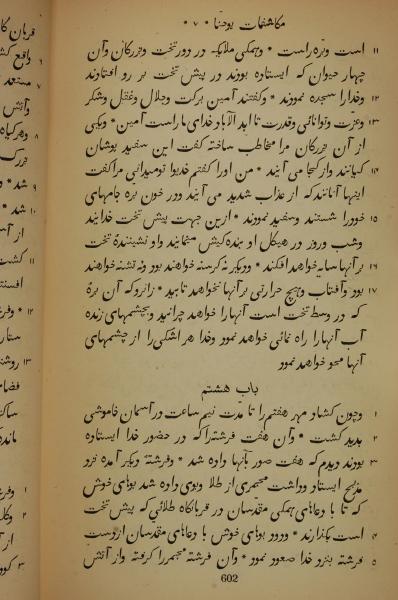 مکاشفات یوحنا * ۷ *
۱۱ است و برّه راست * و همکی ملایک در دور تخت و بزرکان و آن
چهار حیوان که ایستاده بودند در پیش تخت بر رو افتادند
۱۲ و خدا را سجده نمودند * و کفتند آمین برکت و جلال و عقل و شکر
۱۳ و عزت و توانائی و قدرت تا ابد الآباد خدای ما راست آمین * و یکی
از آن بزرکان مرا مخاطب ساخته کفت این سفید پوشان
۱۴ کیانند و از کجا می آیند * من او را کفتم خدیوا تو میدانی مرا کفت
اینها آنانند که از عذاب شدید می آیند و در خون برّه جامهای
۱۵ خود را شستند و سفید نمودند * از این جهت پیش تخت خدایند
و شب و روز در هیکل او بنده کیش مینمایند و او نشینندهٔ تخت
۱۶ بر آنها سایه خواهد افکند * و دیکر نه کرسنه خواهند بود و نه تشنه خواهند
۱۷ بود و آفتاب و هیچ حرارتی بر آنها نخواهد تابید * زانرو که آن برّهٔ
که در وسط تخت است آنها را خواهد چرانید و بچشمهای زنده
آب آنها را راه نمائی خواهد نمود و خدا هر اشکی را از چشمهای
آنها محو خواهد نمود
باب هشتم
۱ و چون کشاد مهر هفتم را تا مدّت نیم ساعت در آسمان خاموشی
۲ پدید کشت * و آن هفت فرشته را که در حضور خدا ایستاده
۳ بودند دیدم که هفت صور بآنها داده شد * و فرشتهٔ دیکر آمده نزد
مذبح ایستاد و داشت مجمری از طلا و بوی داده شد بوهای خوش
که تا با دعاهای همکی مقدّسان در قربانکاه طلائی که پیش تخت
۴ است بکذارند * و دود بوهای خوش با دعاهای مقدّسان از دست
۵ فرشته بنزد خدا صعود نمود * و آن فرشته مجمر را کرفته و از آتش
602